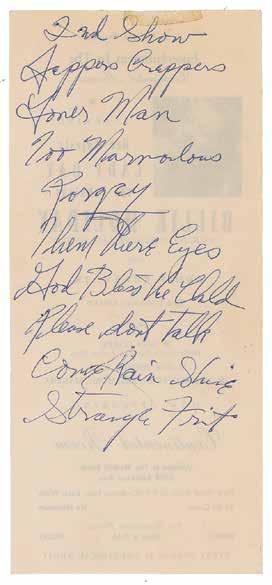 2nd Show
Jeppers Creppers
Lover Man
Too Marvalous
Porgey
Them there Eyes
God Bless the Child
Please dont Talk
Come Rain Shine
Strange Frit